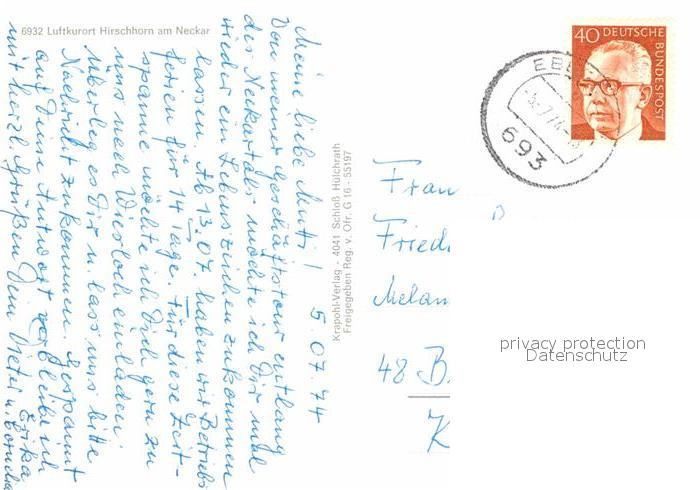 6932 Luftkurort Hirschhorn am Neckar
5.07.74
Meine liebe Mutti!
Von meiner Geschäftstour entlang
des Neckartals möchte ich Dir mal
wieder ein Lebenszeichen zukommen
lassen. Ab 13.07. haben wir Betriebs
ferien für 14 Tage. Für diese Zeit-
spanne möchte ich Dich gern zu
uns nach Wiesloch einladen.
Überleg es Dir u. lass uns bitte
Nachricht zukommen. Gespannt
auf Deine Antwort verbleibe ich
mit herzl. Grüßen Dein Dieter u.
Erika
Krapohl-Verlag - 4041 Schloß Hülchrath
Freigegeben Reg. v. Ofr. G 16 - 55197
40 DEUTSCHE
BUNDESPOST
EBE
693
Frau
Fried
Melan
48 B
K
privacy protection
Datenschutz